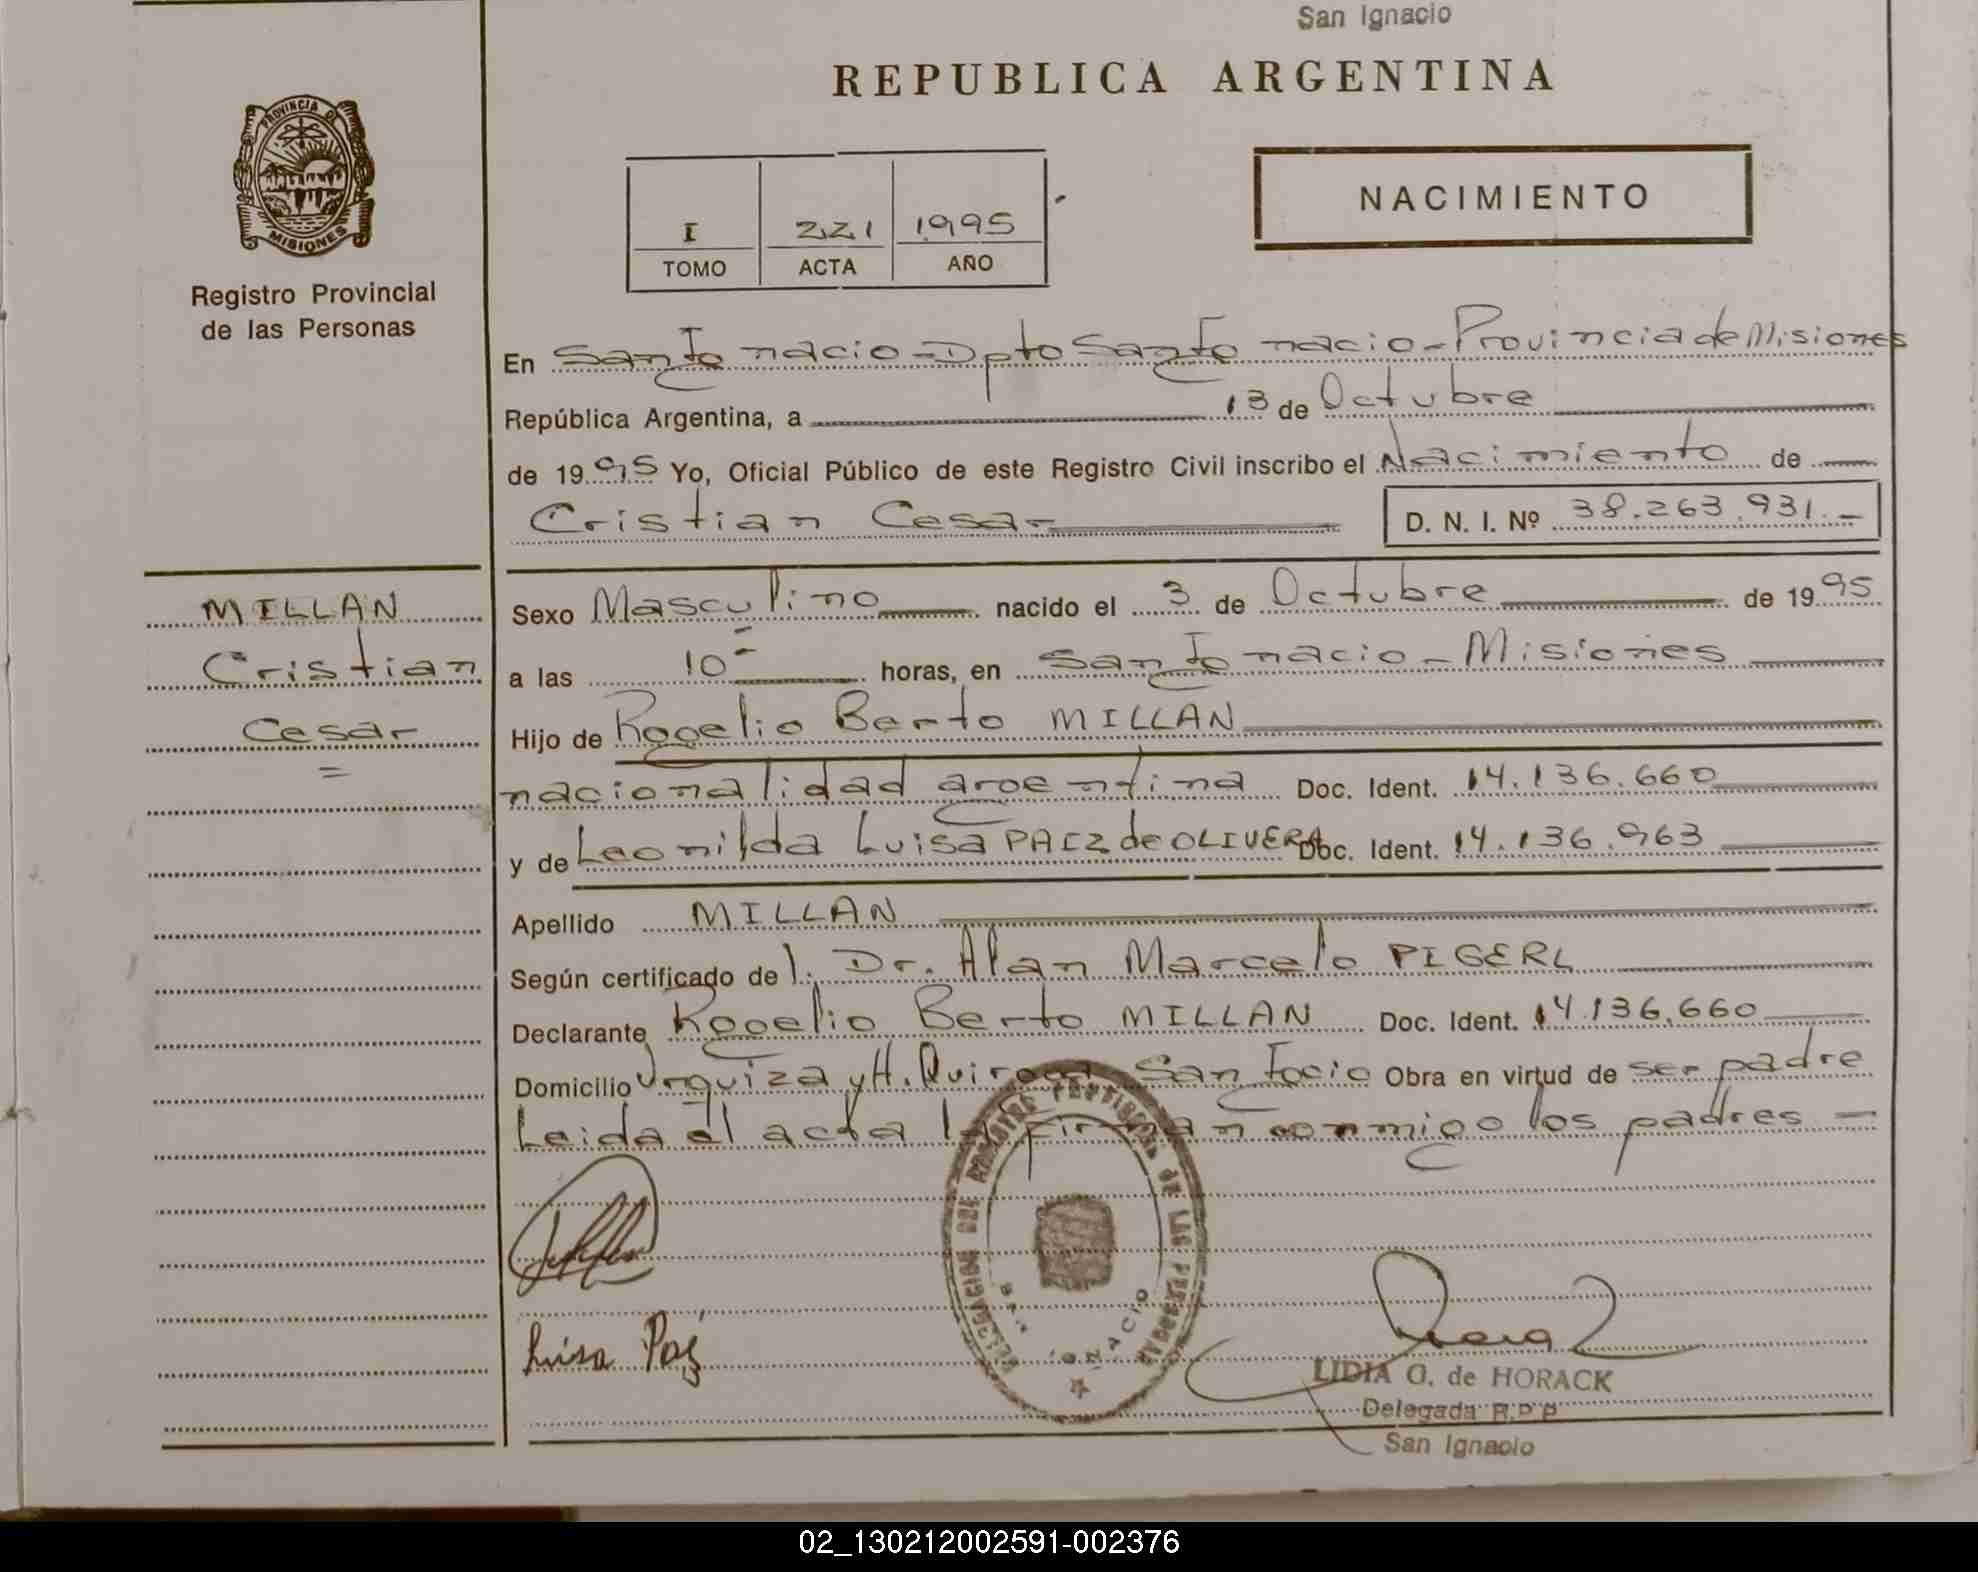 San Ignacio
REPUBLICA ARGENTINA
PROVINCIA DE
MISIONES
Registro Provincial
de las Personas
I 221 1995
TOMO ACTA AÑO
NACIMIENTO
En San Ignacio - Dpto San Ignacio - Provincia de Misiones
República Argentina, a 13 de Octubre
de 1995 Yo, Oficial Público de este Registro Civil inscribo el Nacimiento de
Cristian Cesar D. N. I. Nº 38.263.931.-
MILLAN
Cristian
Cesar
Sexo Masculino nacido el 3 de Octubre de 1995
a las 10 horas, en San Ignacio - Misiones
Hijo de Rogelio Berto MILLAN
nacionalidad argentina Doc. Ident. 14.136.660
y de Leonilda Luisa PAEZ de OLIVERA Doc. Ident. 14.136.963
Apellido MILLAN
Según certificado de l. Dr. Alan Marcelo PIGERL
Declarante Rogelio Berto MILLAN Doc. Ident. 14.136.660
Domicilio Urquiza y H. Quiroga San Igcio Obra en virtud de ser padre
Leida el acta la firman conmigo los padres -
DELEGACION DEL REGISTRO PROVINCIAL DE LAS PERSONAS
SAN IGNACIO
Luisa Paez
LIDIA O. de HORACK
Delegada R.P.P
San Ignacio
02_130212002591-002376